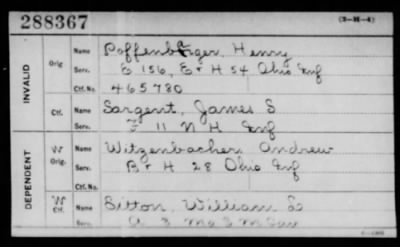 288367 (3-M-4)
INVALID Orig Name Poffenbarger, Henry
Serv. E 156, E & H 54 Ohio Inf
Ctf. No. 465780
Ctf. Name Sargent, James S
Serv. F 11 N H Inf
DEPENDENT W Orig. Name Witzenbacher, Andrew
Serv. B & H 28 Ohio Inf
Ctf. No.
W Ctf. Name Bitton, William L
A 3 Mo S M Cav